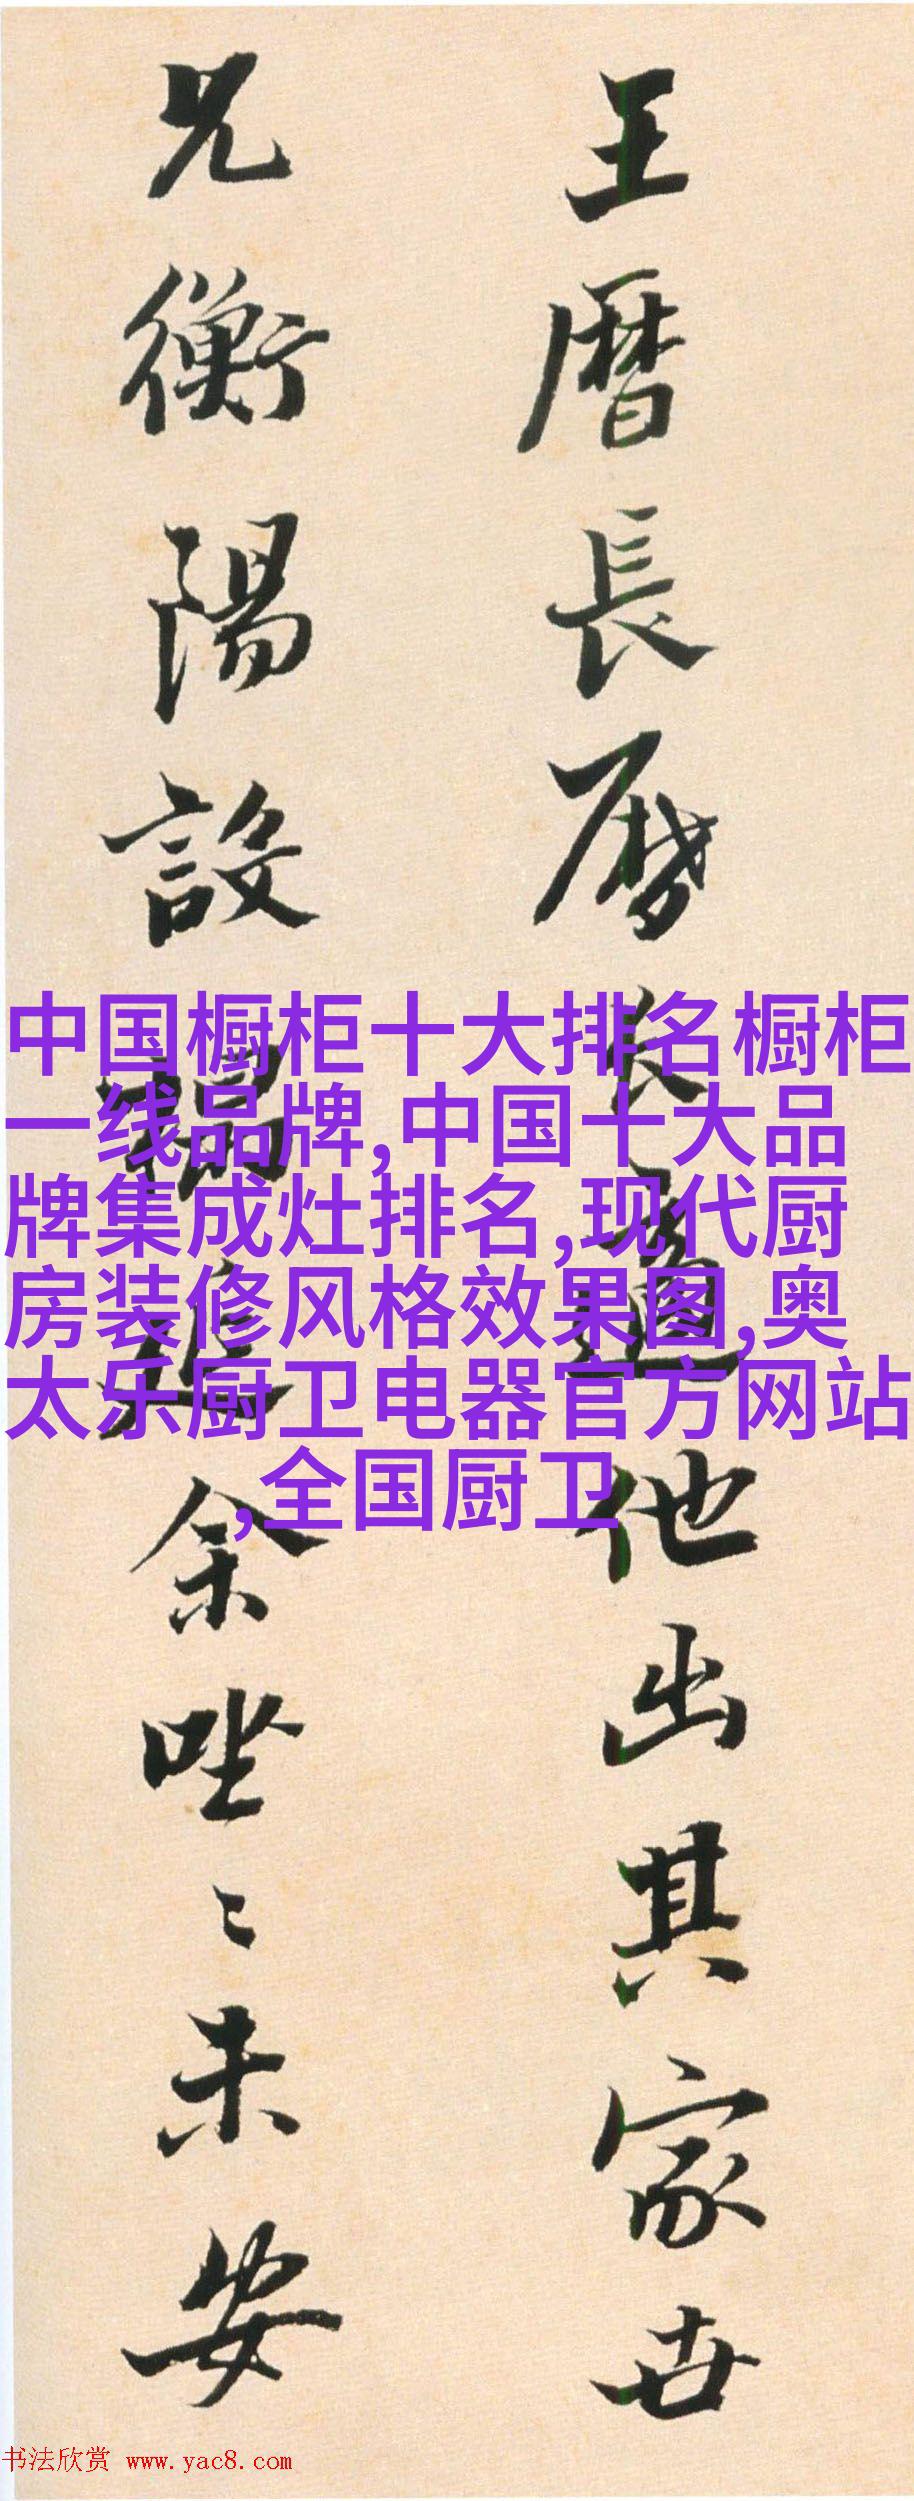 王暦長
他出其家世
兄衡陽設榻延余坐〻未安
中国橱柜十大排名橱柜
一线品牌,中国十大品
牌集成灶排名,现代厨
房装修风格效果图,奥
太乐厨卫电器官方网站
,全国厨卫
书法欣赏 www.yac8.com